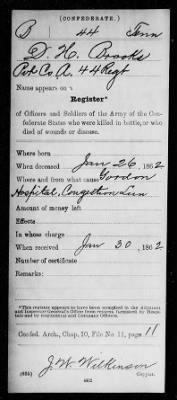 (CONFEDERATE.)
B 44 Tenn
D. H. Brooks
Pvt Co. A, 44 Regt
Name appears on a
Register*
of Officers and Soldiers of the Army of the Con-
federate States who were killed in battle, or who
died of wounds or disease.
Where born
When deceased Jan 26, 1862
Where and from what cause Gordon
Hospital, Congestion
Amount of money left
Effects
In whose charge
When received Jan 30, 1862
Number of certificate
Remarks:
*This register appears to have been compiled in the Adjutant
and Inspector General's Office from returns furnished by Hospi-
tals and by Regimental and Company Officers.
Confed. Arch., Chap. 10, File No. 11, page 11
J. W. Wilkinson
Copyist.